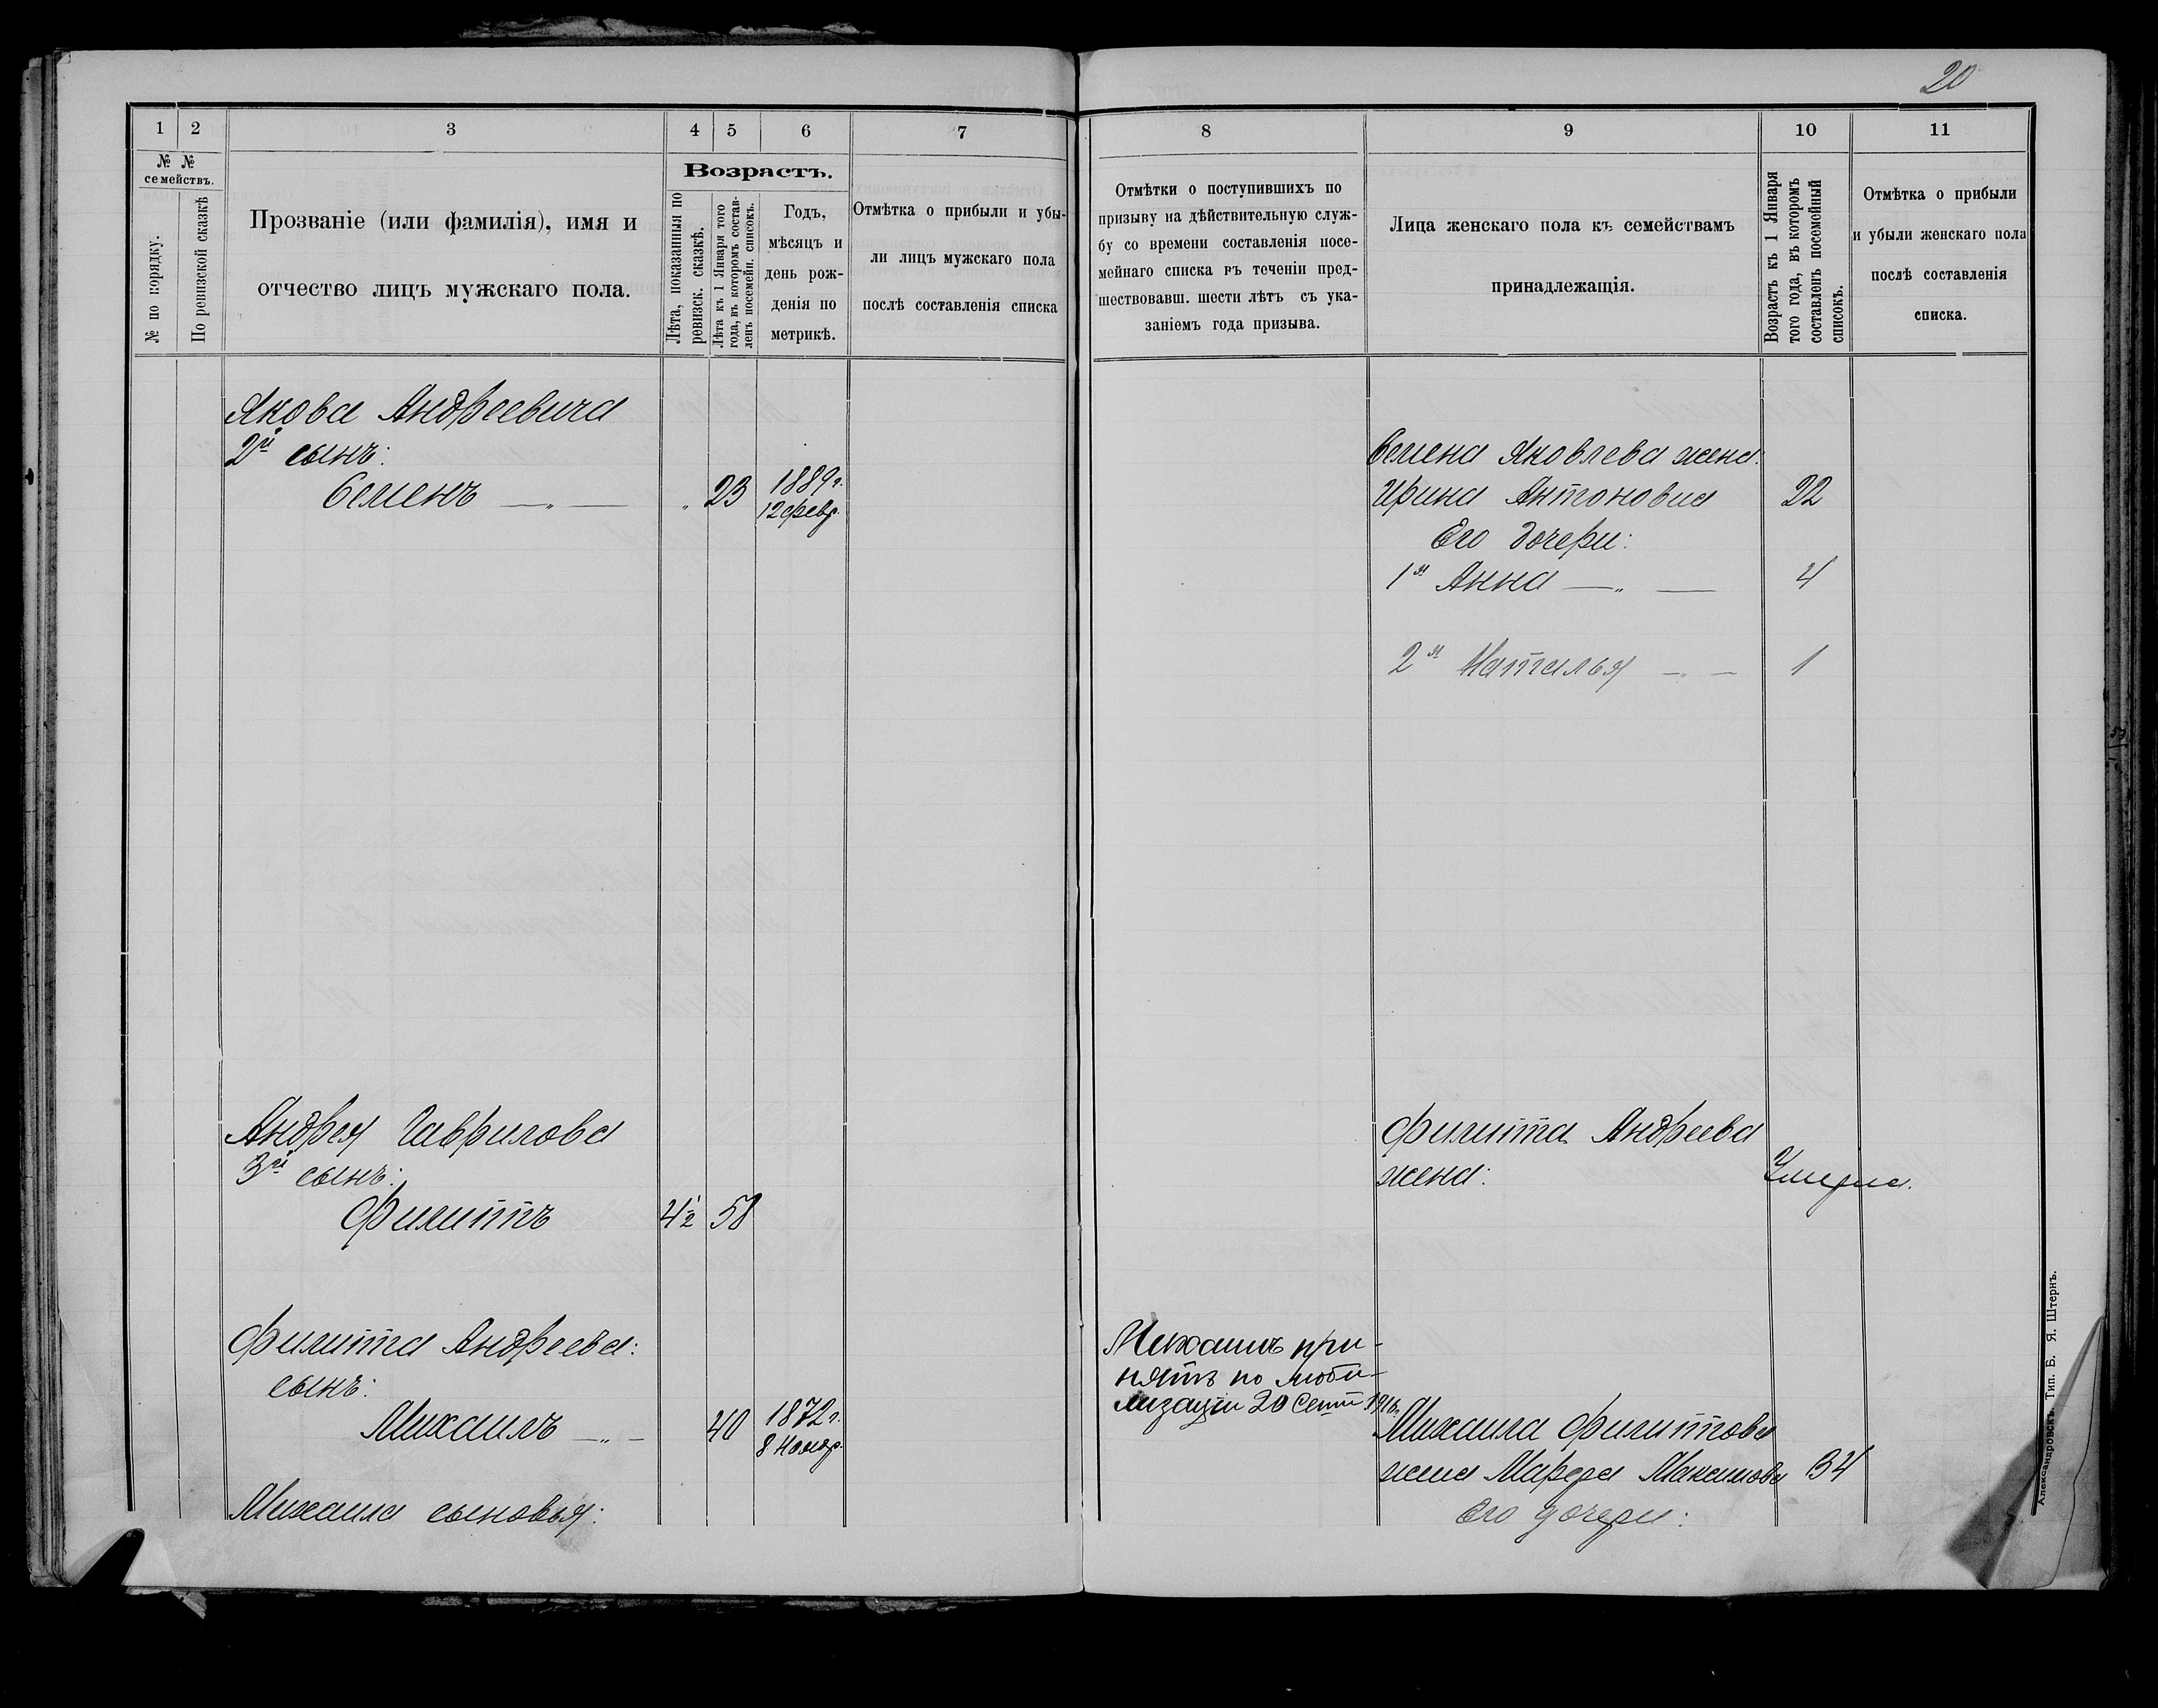 20
1 2 3 4 5 6 7
№ № семействъ.
№ по порядку.
По ревизской сказкѣ
Прозваніе (или фамилія), имя и
отчество лицъ мужскаго пола.
Возрастъ.
Лѣта, показанныя по
ревизск. сказкѣ.
Лѣта къ 1 Января того
года, въ которомъ состав-
ленъ посемейн. списокъ.
Годъ,
мѣсяцъ и
день рож-
денія по
метрикѣ.
Отмѣтка о прибыли и убы-
ли лицъ мужскаго пола
послѣ составленія списка
Якова Андреевича
2й сынъ:
Семенъ — „ — „ 23 1889 г.
12 февр.
Андрея Гаврилова
3й сынъ:
Филиппъ 4½ 58
Филиппа Андреева:
сынъ:
Михаилъ — „ — 40 1872 г.
8 Ноябр.
Михаила сыновья:
8 9 10 11
Отмѣтки о поступившихъ по
призыву на дѣйствительную служ-
бу со времени составленія посе-
мейнаго списка въ теченіи пред-
шествовавш. шести лѣтъ съ ука-
заніемъ года призыва.
Лица женскаго пола къ семействамъ
принадлежащія.
Возрастъ къ 1 Января
того года, въ которомъ
составленъ посемейный
списокъ.
Отмѣтка о прибыли
и убыли женскаго пола
послѣ составленія
списка.
Семена Яковлева жена:
Ирина Антоновна 22
Его дочери:
1я Анна — „ — 4
2я Наталья — „ — 1
Филиппа Андреева
жена: Умерла.
Михаилъ при-
нятъ по моби-
лизаціи 20 Сент 1916 г.
Михаила Филиппова
жена Марфа Максимова 34
Его дочери:
Александровскъ. Тип. Б. Я. Штернъ.